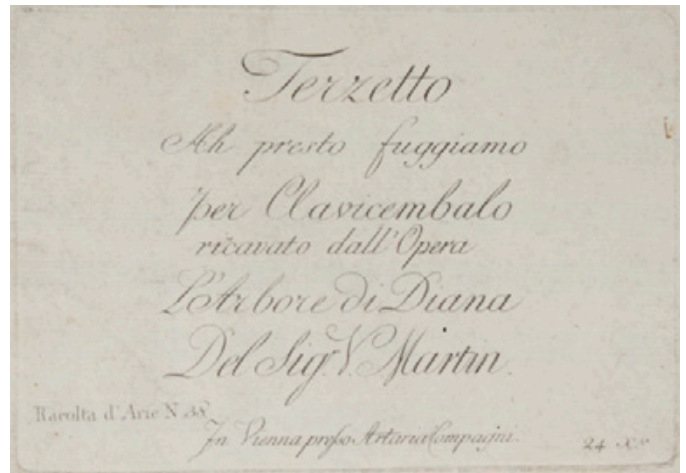 Terzetto
Ah presto fuggiamo
per Clavicembalo
ricavato dall'Opera
L'Arbore di Diana
Del Sigr. V. Martin.
Racolta d'Arie N. 38
In Vienna presso Artaria Compagni.
24 Xr